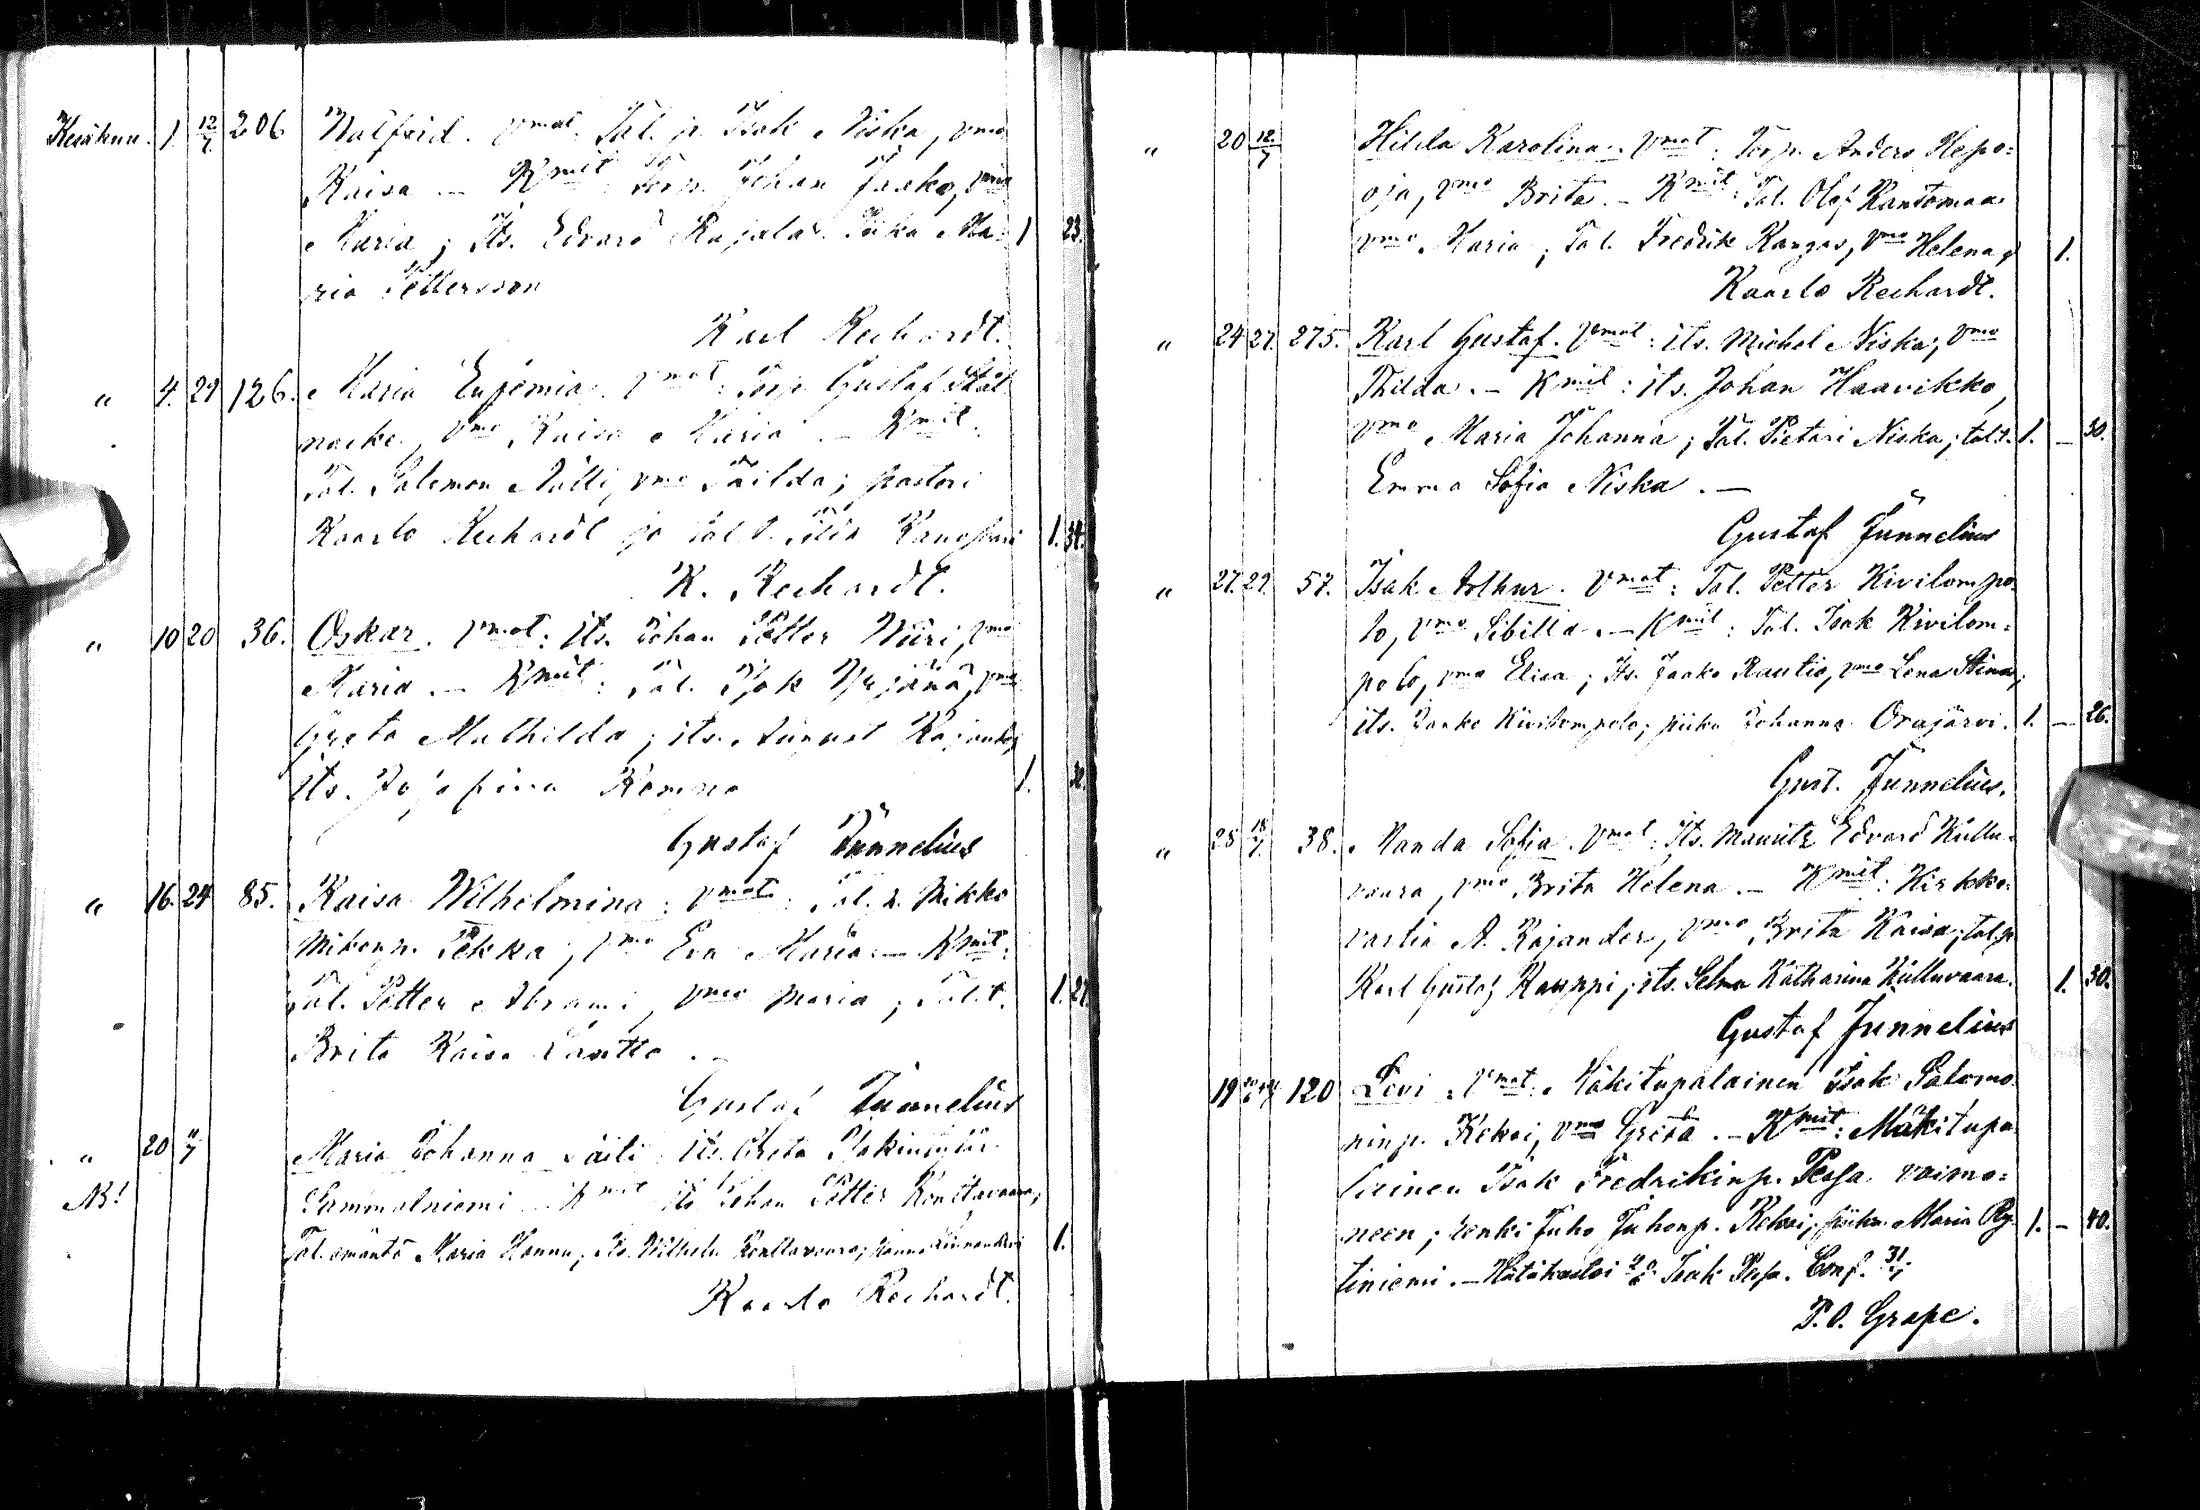 Kesäkuu. 1. 12/7. 206 Walfrid. Vmat. Tal. p. Isak Niska, vmo
Kaisa — Kmit: Torp. Johan Jaako, vmo
Maria; Its. Edvard Rajala. Piika Ma- 1 23.
ria Pettersson
Karl Rechardt.
" 4. 29 126. Maria Eufemia. Vmat: Torp. Gustaf
vmo Kaisa Maria. — Kmit.
Tal. Salomon Nätti, vmo Tilda; pastori
Kaarlo Rechardt ja tal. t. 1. 34.
K. Rechardt.
" 10 20 36. Oskar. Vmat: Its. Johan Petter Niiri, vmo
Maria. — Kmit: Tal. Isak Yrjänä, vmo
Greta Mathilda; its. August
its. Josefina 1. 32.
Gustaf Junnelius
" 16. 24 85. Kaisa Wilhelmina: Vmat: Tal. p. Mikko
Mikonp. Pekka, vmo Eva Maria. — Kmit:
Tal. Petter Abrami, vmo Maria; Tal. t. 1. 21
Brita Kaisa Lantto. —
Gustaf Junnelius
" 20 Maria Johanna. Äiti: Its. Greta
NB! Sammalniemi. Kmit Its. Johan Petter Konttavaara,
Tal. emäntä Maria Hannu; Its. Wilhelm Konttavaara; 1.
Kaarlo Rechardt.
" 20 12/7 Hilda Karolina. Vmat: Torp. Anders Hepo-
oja, vmo Brita. — Kmit: Tal. Olof Rantamaa
vmo Maria; Tal. Fredrik Kangas, vmo Helena, 1.
Kaarlo Rechardt.
" 24 27. 275. Karl Gustaf. Vmat: its. Michel Niska, vmo
Thilda. — Kmit: its. Johan Haavikko,
vmo Maria Johanna; Tal. Pietari Niska; tal.t. 1. — 30.
Emma Sofia Niska. —
Gustaf Junnelius
" 27. 29. 57. Isak Arthur. Vmat: Tal. Petter Kivilompo-
lo, vmo Sibilla. — Kmit: Tal. Isak Kivilom-
polo, vmo Elisa; Its. Jaako Rautio, vmo Lena Stina;
its. Jaako Kivilompolo; piika Johanna Orajärvi. 1. — 26.
Gust. Junnelius.
" 28 18/7. 38. Manda Sofia. Vmat: Its. Mauritz Edvard Kullu-
vaara, vmo Brita Helena. — Kmit: Kirkko-
vartia A. Rajander, vmo Brita Kaisa; tal.p
Karl Gustaf Kauppi; its. Selma Katharina Kulluvaara. 1. 30.
Gustaf Junnelius
19 120 Levi. Vmat. Mäkitupalainen Isak Salomo-
ninp. Kekoi, vmo Greta. — Kmit: Mäkitupa
lainen Isak Fredrikinp. Pessa vaimo-
neen; renki Juho Juhonp. Kekoi; piika Maria Ry- 1. — 40.
tiniemi. — Hätäkastoi Isak Pessa. Conf. 31/7
P. O. Grape.